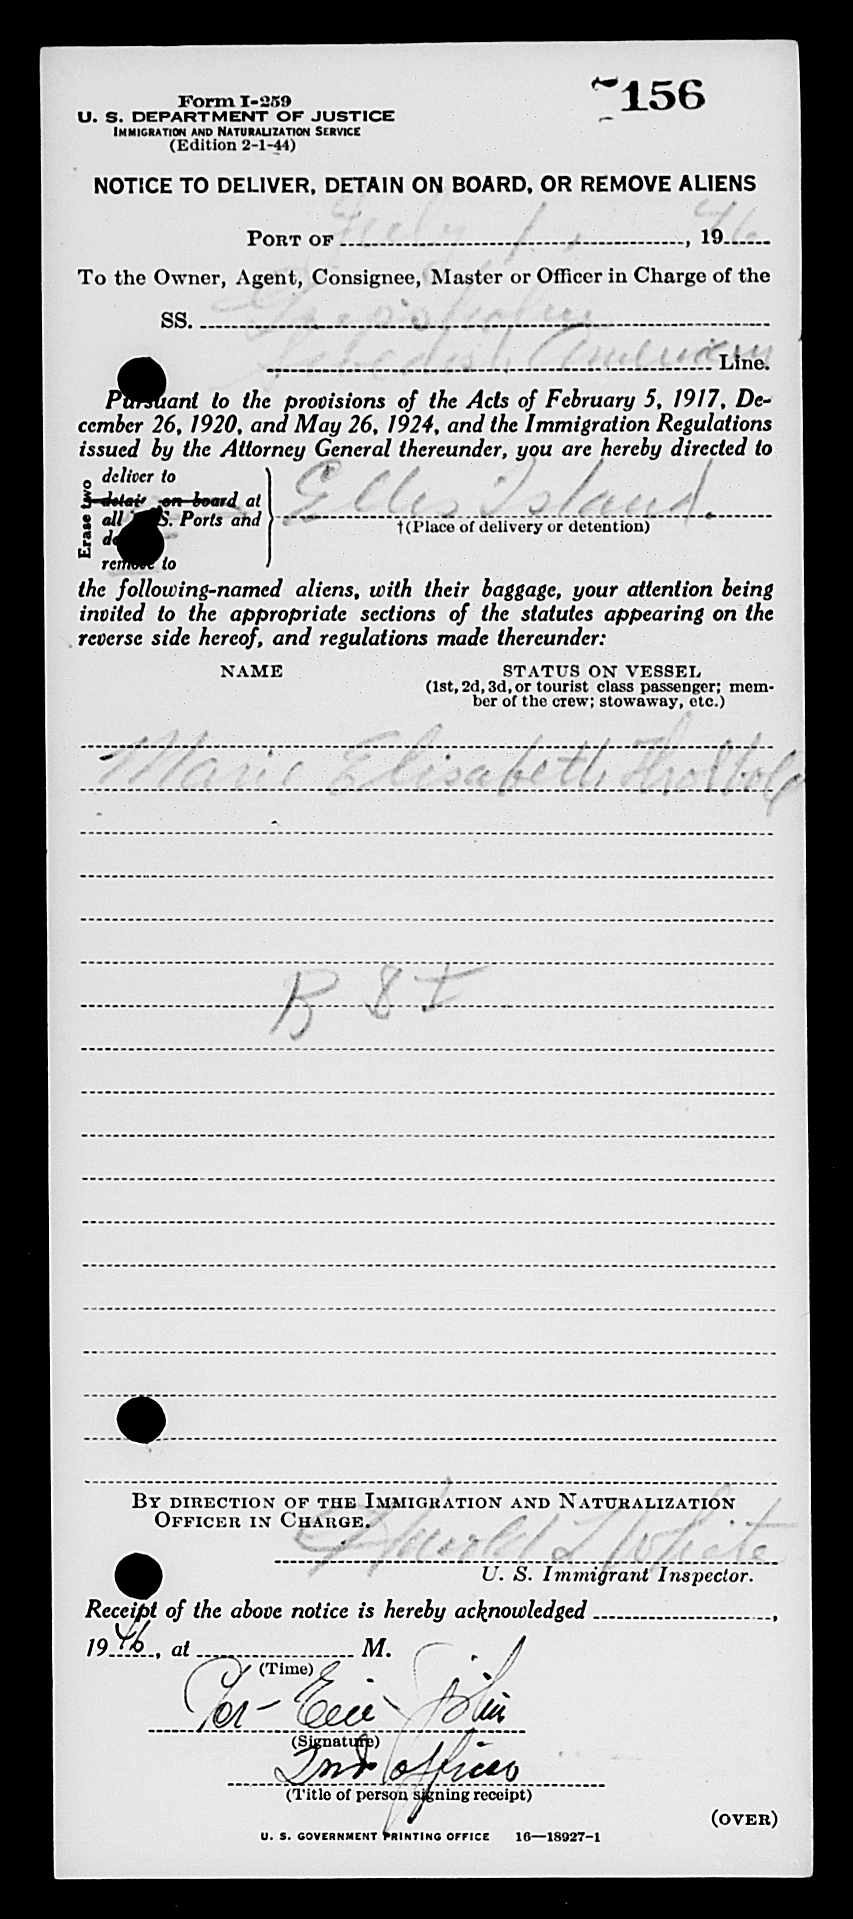 156
Form I-259
U. S. DEPARTMENT OF JUSTICE
IMMIGRATION AND NATURALIZATION SERVICE
(Edition 2-1-44)
NOTICE TO DELIVER, DETAIN ON BOARD, OR REMOVE ALIENS
PORT OF July 1, 1946
To the Owner, Agent, Consignee, Master or Officer in Charge of the
SS. Gripsholm
Swedish American Line.
Pursuant to the provisions of the Acts of February 5, 1917, De-
cember 26, 1920, and May 26, 1924, and the Immigration Regulations
issued by the Attorney General thereunder, you are hereby directed to
Erase two
deliver to
detain on board at
all U. S. Ports and
remove to
Ellis Island.
†(Place of delivery or detention)
the following-named aliens, with their baggage, your attention being
invited to the appropriate sections of the statutes appearing on the
reverse side hereof, and regulations made thereunder:
NAME STATUS ON VESSEL
(1st, 2d, 3d, or tourist class passenger; mem-
ber of the crew; stowaway, etc.)
Marie Elisabeth
B S I
BY DIRECTION OF THE IMMIGRATION AND NATURALIZATION
OFFICER IN CHARGE.
Harold L White
U. S. Immigrant Inspector.
Receipt of the above notice is hereby acknowledged ,
1946, at M.
(Time)
Per-Eric
(Signature)
2nd officer
(Title of person signing receipt)
(OVER)
U. S. GOVERNMENT PRINTING OFFICE 16—18927-1